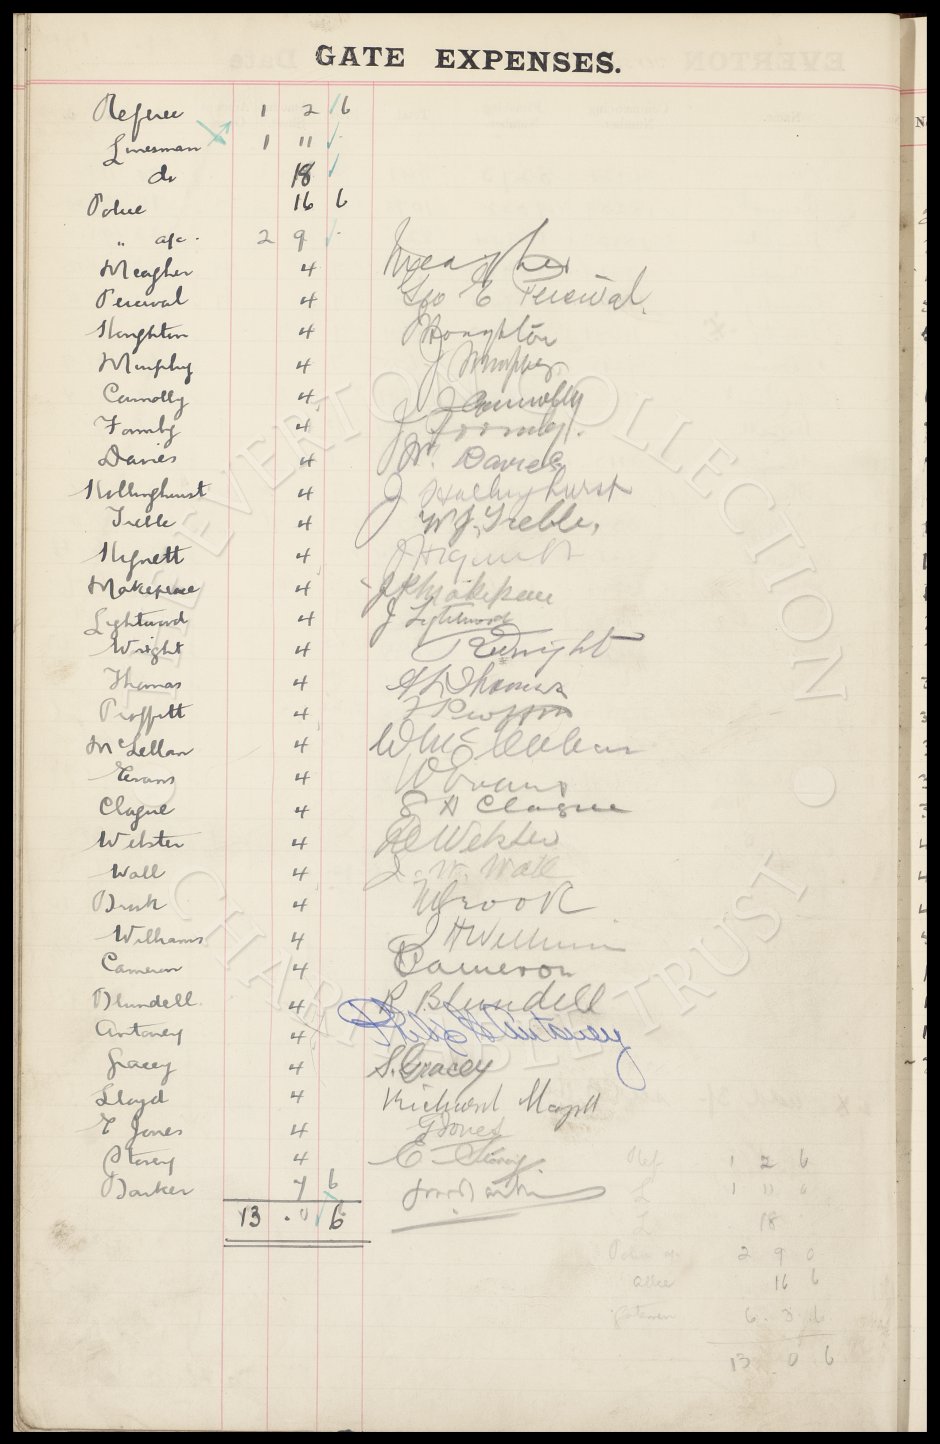 GATE EXPENSES.
Referee 1 2 6
Linesman 1 11
do 18
Police 16 6
" a/c. 2 9
Meagher 4 Meagher
Percival 4 Geo E Percival.
Houghton 4 Houghton
Murphy 4 J Murphy.
Connolly 4 J Connolly
Formby 4 J Formby.
Davies 4 W. Davies
Hollinghurst 4 J Hollinghurst
Treble 4 W J. Treble.
Hignett 4 J Hignett
Makepeace 4 Makepeace
Lightwood 4 J Lightwood
Wright 4 Wright
Thomas 4 Thomas
Proffitt 4
McLellan 4 W McLellan
Evans 4 W Evans
Clague 4 E H Clague
Webster 4 Webster
Wall 4 J. W. Wall
Brook 4 Brook
Williams 4 J H Williams
Cameron 4 Cameron
Blundell 4 R Blundell
Antoney 4 Antoney
Gracey 4 S. Gracey
Lloyd 4 Richard
E Jones 4 Jones
Storey 4 E Storey.
Barker 7 6
13 . 0 6
Ref 1 2 6
L 1 11 0
L 18
Police 2 9 0
16 6
6 . 3 . 6
13 0 6
EVERTON COLLECTION
CHARITABLE TRUST